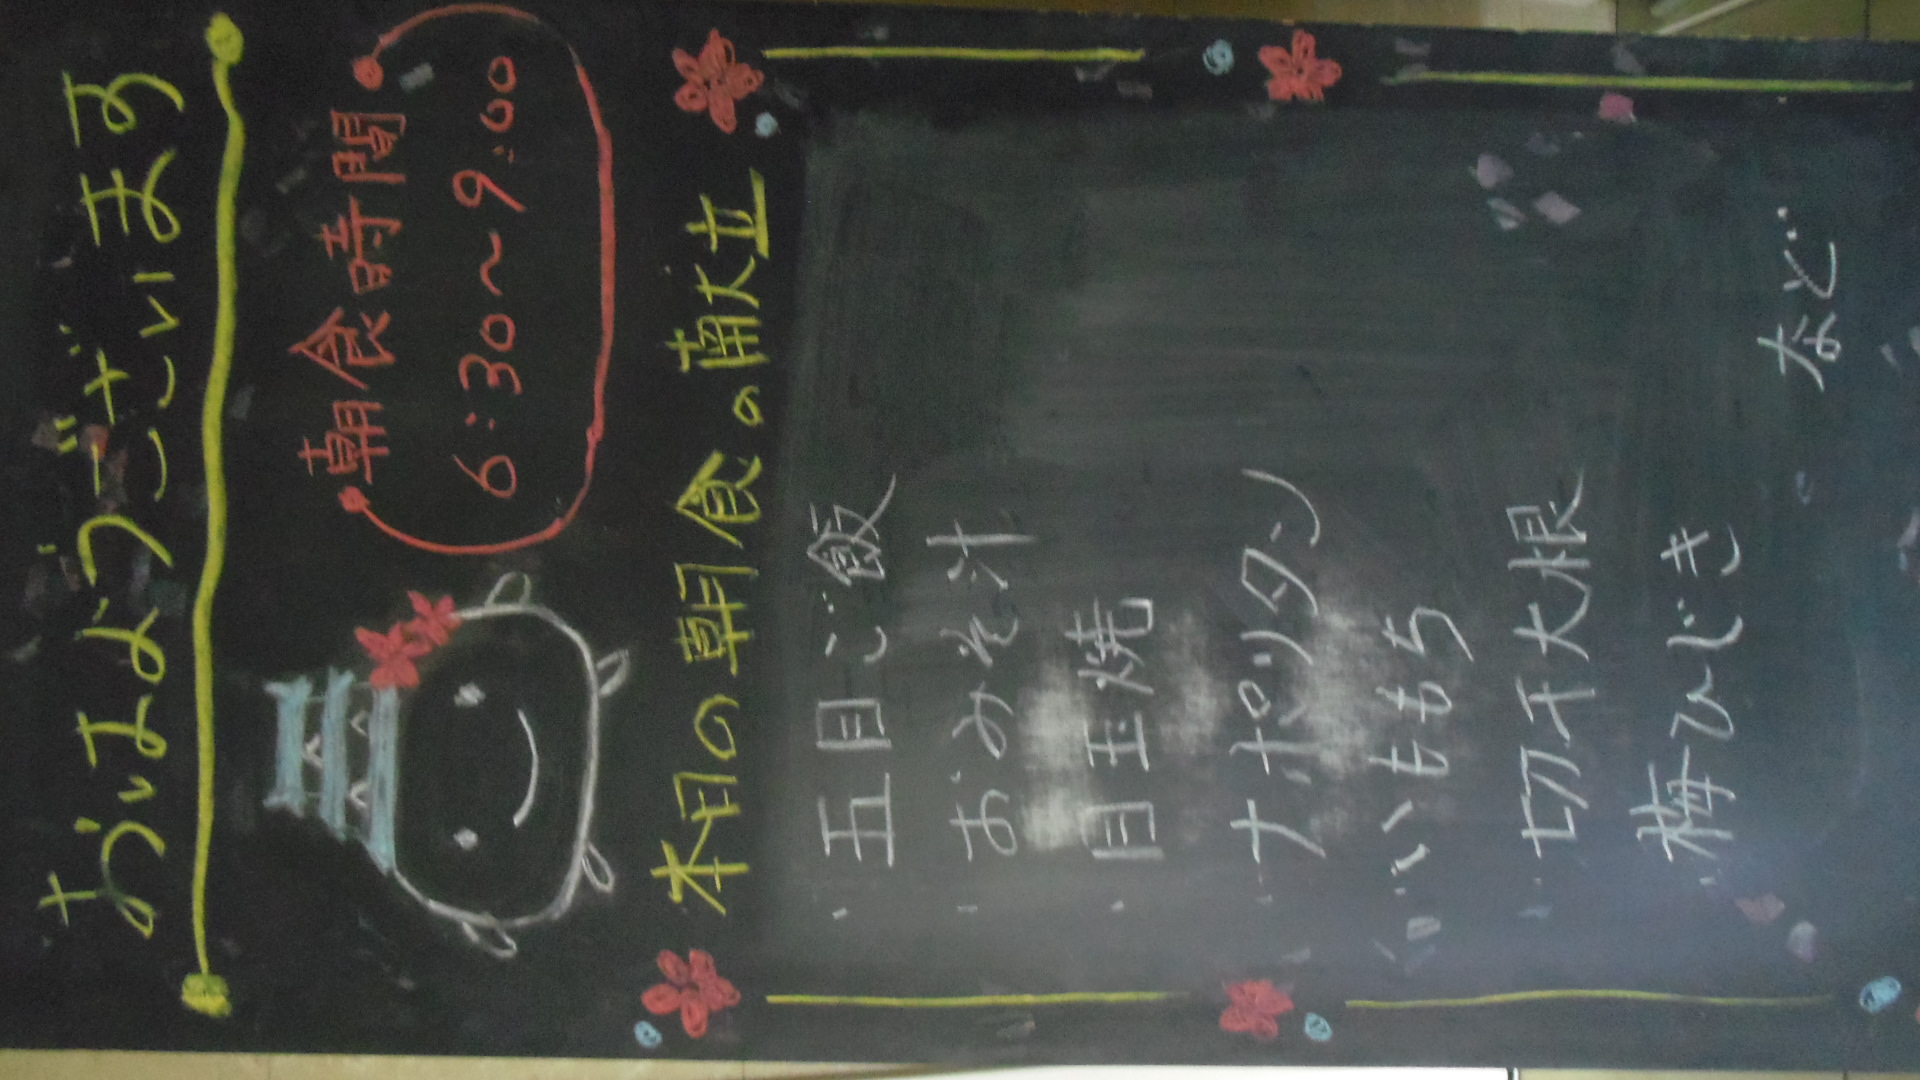 おはようございます
朝食時間
6:30〜9:00
本日の朝食の献立
・五目ご飯
・おみそ汁
・目玉焼
・ナポリタン
・いももち
・切干大根
・梅ひじき
など